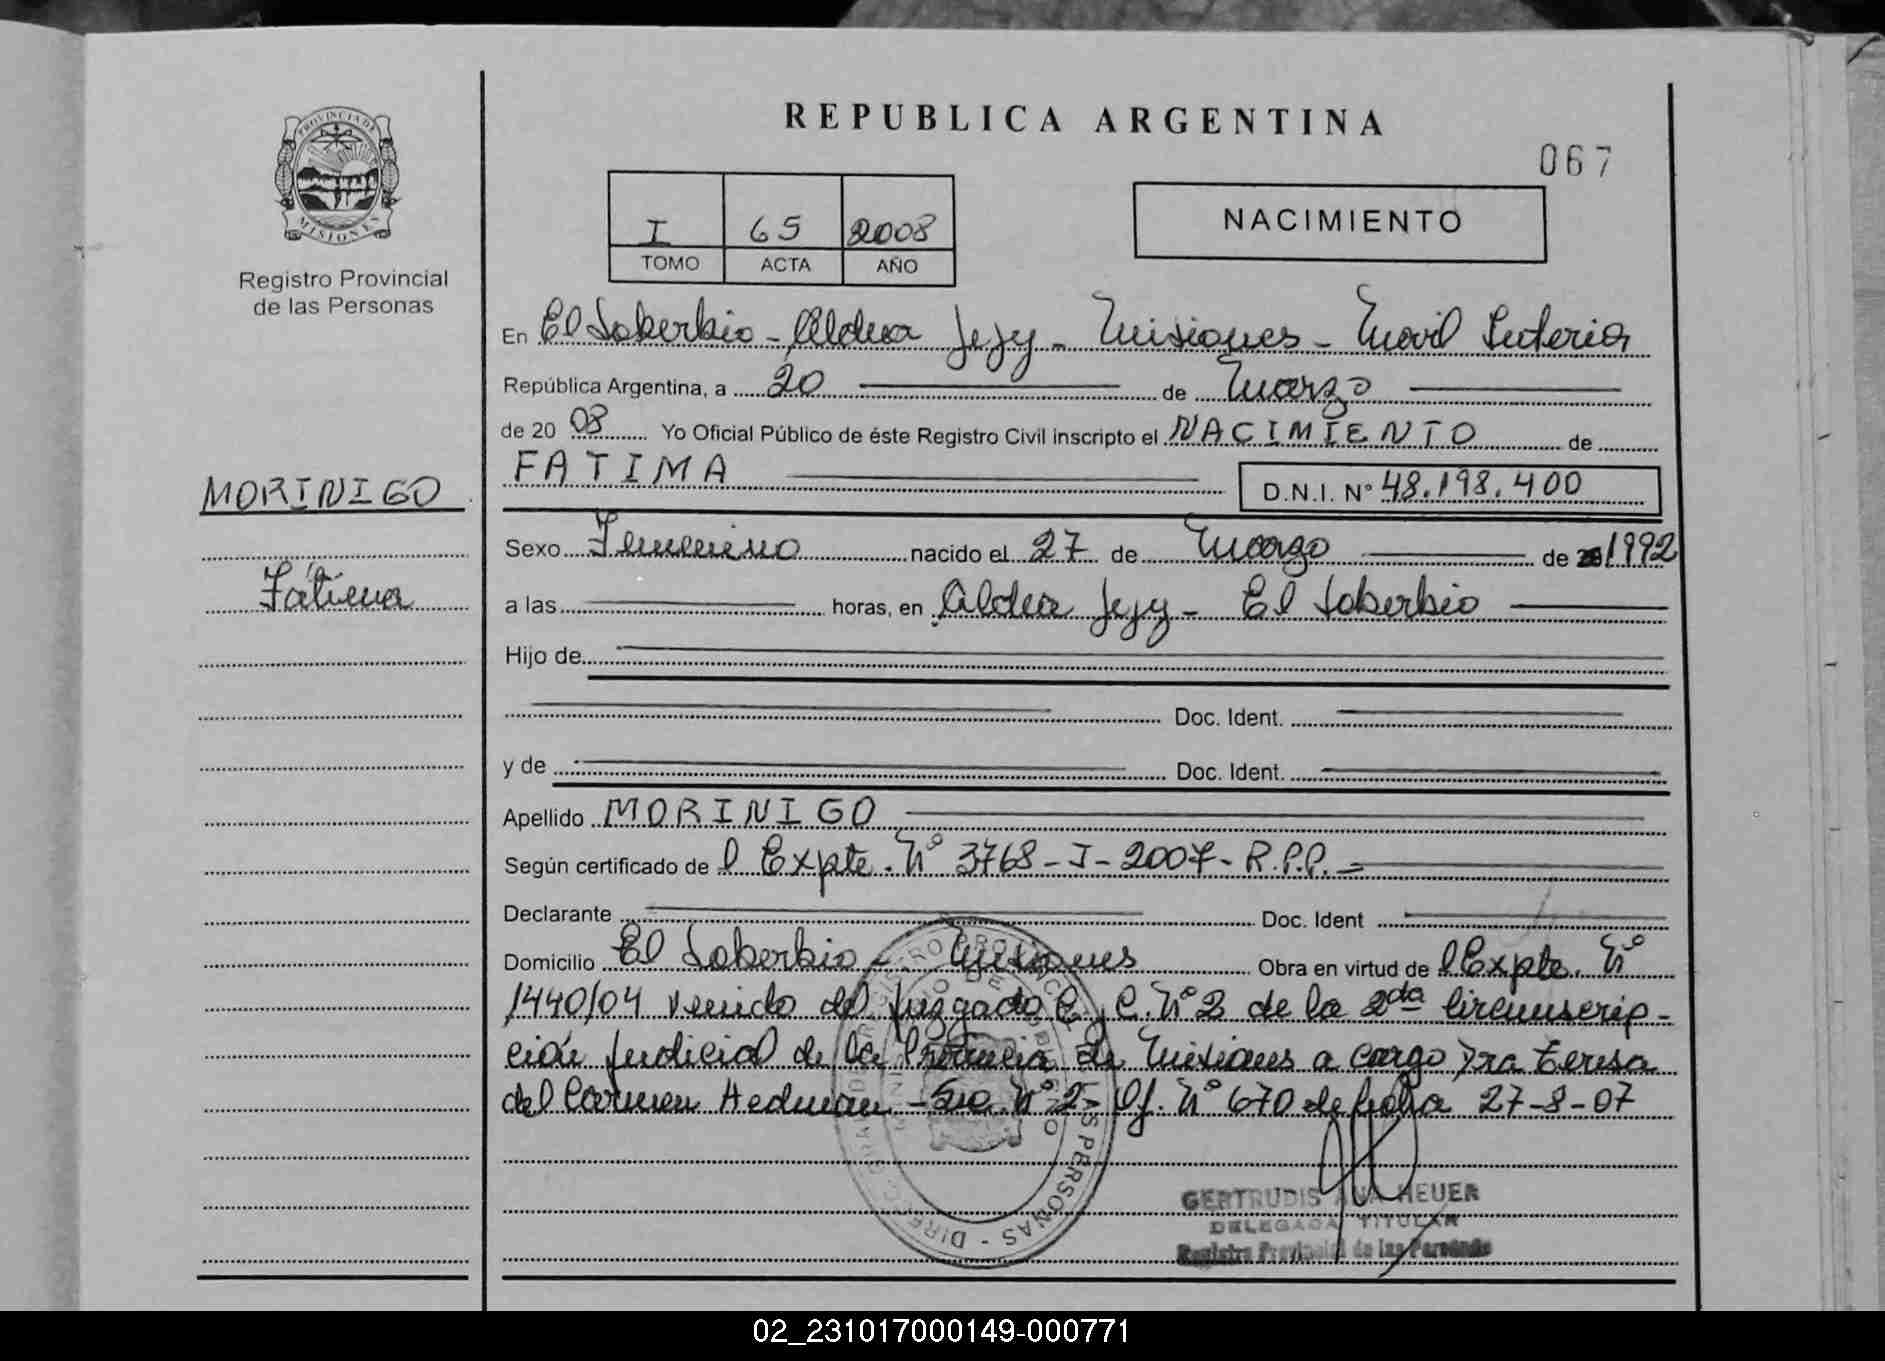 REPUBLICA ARGENTINA
067
PROVINCIA DE
MISIONES
Registro Provincial
de las Personas
I 65 2008
TOMO ACTA AÑO
NACIMIENTO
En El Soberbio - Aldea Jejy - Misiones - Movil Interior
República Argentina, a 20 de Marzo
de 20 08 Yo Oficial Público de éste Registro Civil inscripto el NACIMIENTO de
FATIMA D.N.I. N° 48.198.400
MORINIGO
Fátima
Sexo Femenino nacido el 27 de Marzo de 1992
a las horas, en Aldea Jejy - El Soberbio
Hijo de
Doc. Ident.
y de Doc. Ident.
Apellido MORINIGO
Según certificado de l Expte. N° 3768-I-2007-R.P.P.=
Declarante Doc. Ident
Domicilio El Soberbio - Misiones Obra en virtud de l Expte. N°
1440/04 venido del Juzgado C. y C. N° 2 de la 2da Circunscrip-
ción Judicial de la Provincia de Misiones a cargo Dra Teresa
del Carmen Hedman - Sec. N° 2 - Of. N° 670 de fecha 27-8-07
GERTRUDIS ANA HEUER
DELEGADA TITULAR
Registro Provincial de las Personas
02_231017000149-000771